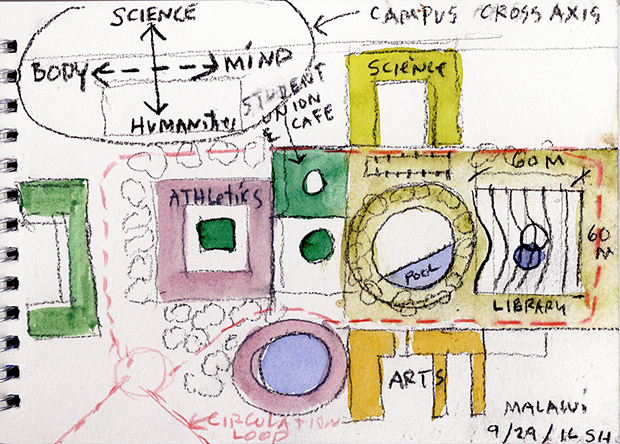 SCIENCE
CAMPUS CROSS AXIS
BODY
MIND
HUMANITIES
STUDENT
UNION
&
CAFE
SCIENCE
60 M
ATHLETICS
60
M
POOL
LIBRARY
ARTS
CIRCULATION
LOOP
MALAWI
9/29/16 SH